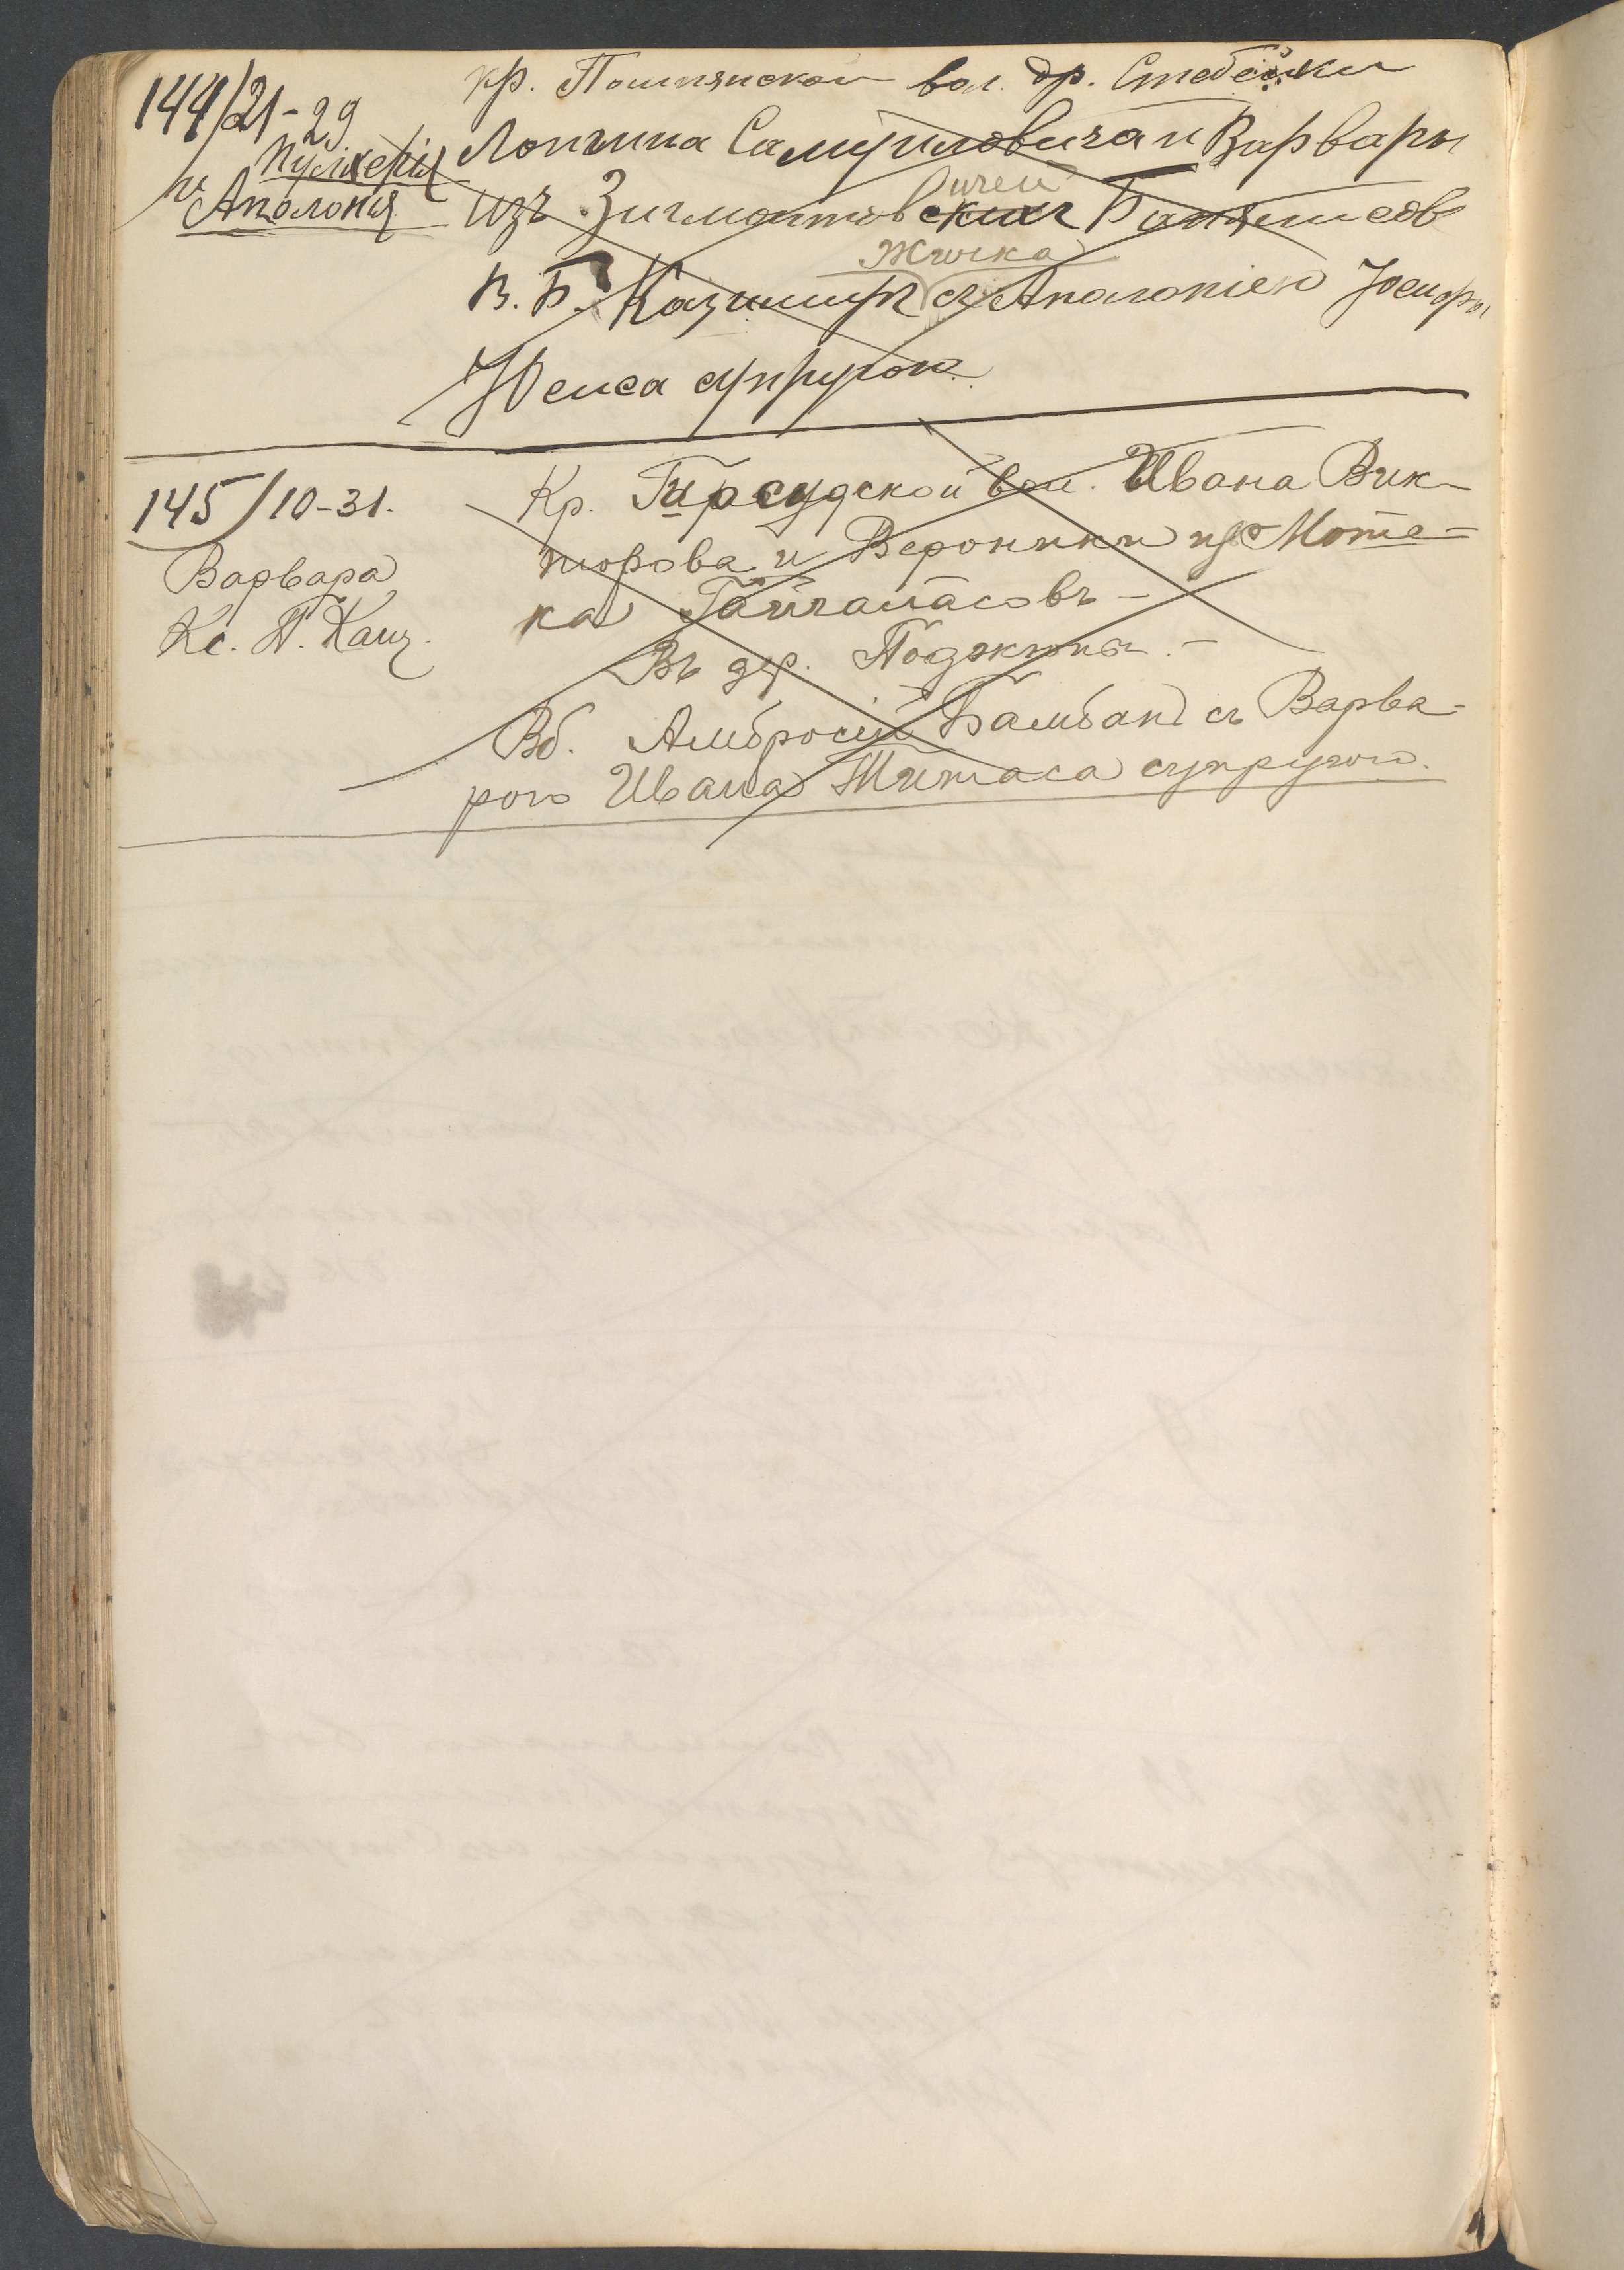 144/21-29
Пулхерія
и Аполонія
кр. Пошпянской вол. др. Стебейки
Лонгина Самуиловича и Варвары
изъ Зигмонтовичей Банялисовъ
Жичка
В. Б. Казимиръ съ Аполоніею Іосифа
Юенса супругою
145/10-31.
Варвара
Кс. П. Канц.
Кр. Гирсудской вол. Ивана Вик-
торова и Вероники изъ Моте-
ка Гайгаласовъ -
Въ дер. Поджюны. -
Вб. Амбросій Бамбан съ Варва-
рою Ивана Титаса супругою.